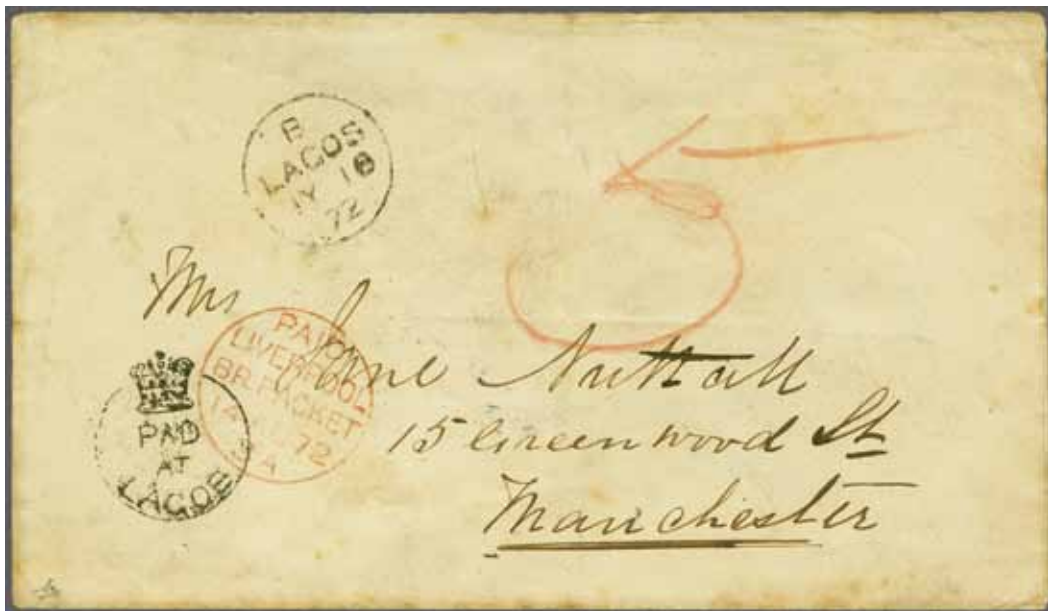 B
LAGOS
MY 18
72
5
Mrs Jane Nuttall
15 Greenwood St
Manchester
PAID
LIVERPOOL
BR. PACKET
14
72
A
PAID
AT
LAGOS